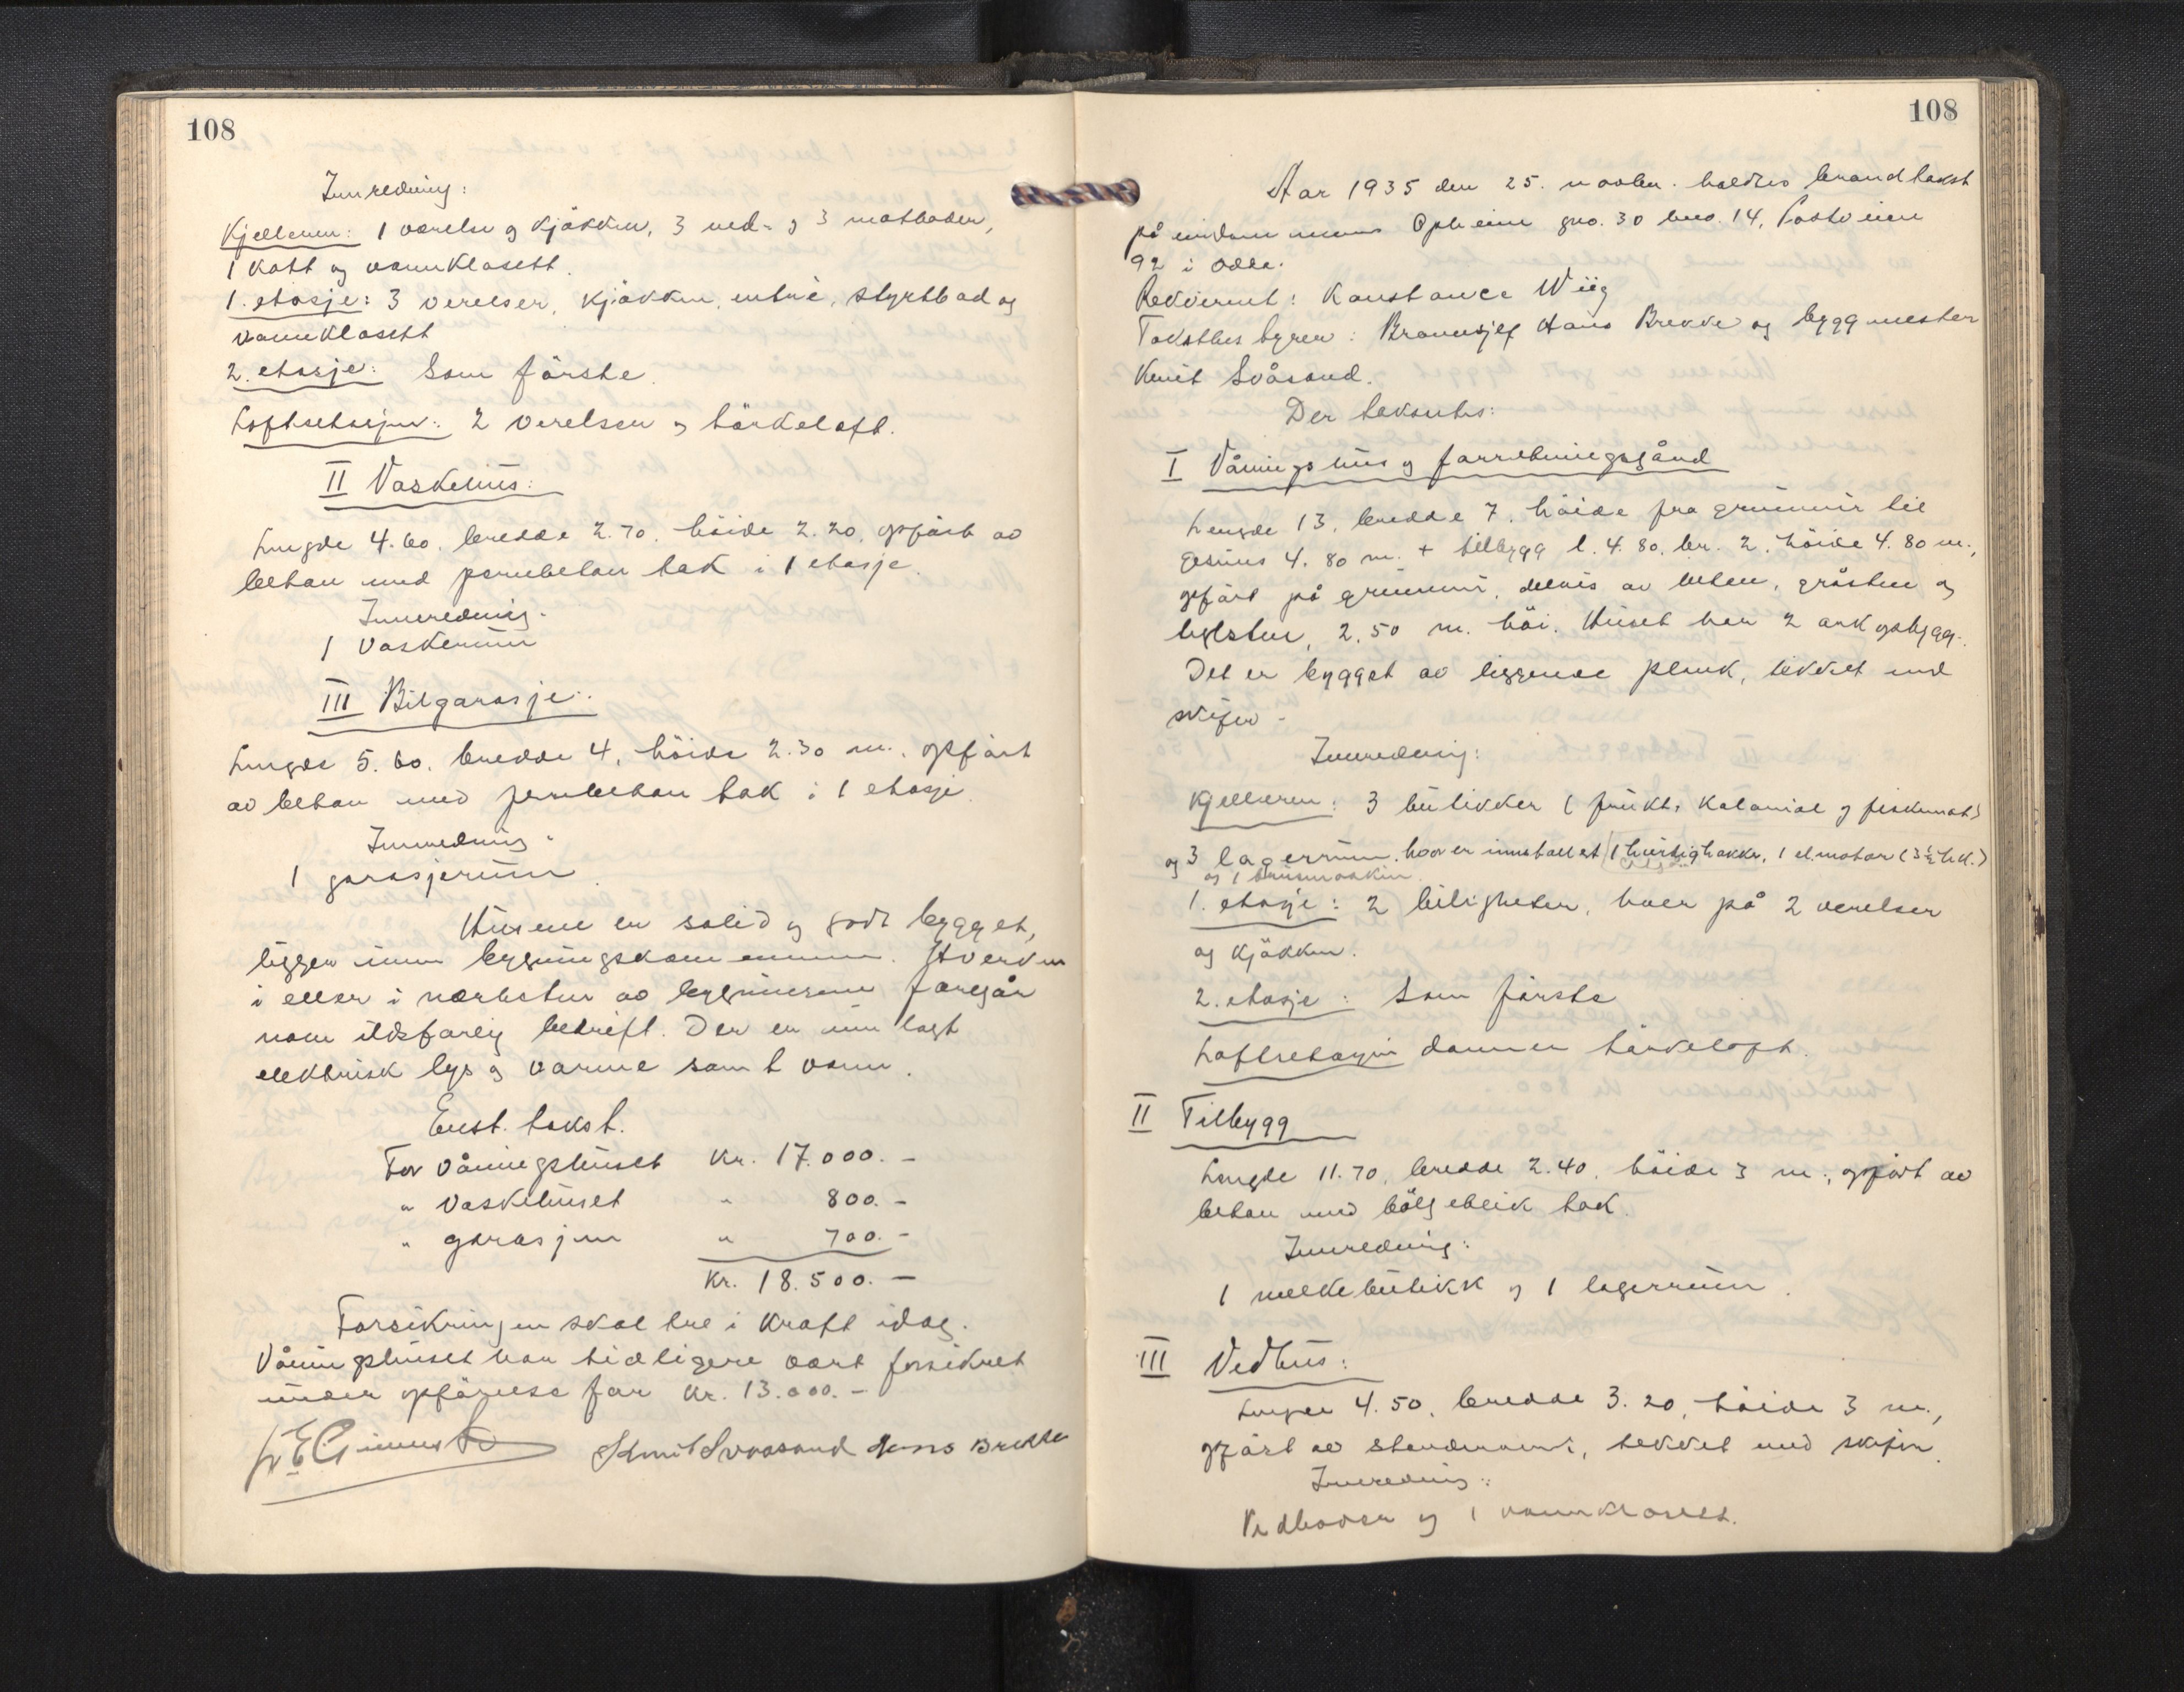 108
Innredning:
Kjelleren: 1 værelse og kjøkken, 3 ved- og 3 matboder,
1 kott og vannklosett.
1. etasje: 3 verelser, kjøkken, entré, styrtbad og
vannklosett
2. etasje: Som første.
Loftsetasjen: 2 verelser og tørkeloft.
II Vaskehus:
Lengde 4.60, bredde 2.70, høide 2.20, opført av
betong med jernbetong tak i 1 etasje.
Innredning.
1 vaskerum
III Bilgarasje:
Lengde 5.60, bredde 4, høide 2.30 m., opført
av betong med jernbetong tak i 1 etasje.
Innredning:
1 garasjerum.
Husene er solid og godt bygget,
ligger innen bygningskommunen. Hverken
i eller i nærheten av bygningene foregår
noen ildsfarlig bedrift. Der er innlagt
elektrisk lys og varme samt vann.
Enst. takst.
For våningshuset kr. 17.000.-
" vaskehuset " 800.-
" garasjen " 700.-
Kr. 18.500.-
Forsikringen skal tre i kraft idag.
Våningshuset har tidligere vært forsikret
under opførelse for kr. 13.000.-
Knut Svaasand Hans Brekke
108
Aar 1935 den 25. novbr. holdtes brandtakst
på eiendommen Opheim gno. 30 bno. 14, Tostveien
92 i Odda.
Rekvirent: Konstance Wiig
Takstbestyrer: Brannsjef Hans Brekke og byggmester
Knut Svåsand.
Der taksertes:
I Våningshus og forretningsgård
Lengde 13, bredde 7, høide fra grunnmur til
gesims 4.80 m. + tilbygg l. 4.80, br. 2, høide 4.80 m.,
opført på grunnmur, delvis av betong, gråsten og
teglsten, 2.50 m. høi. Huset har 2 ark opbygg.
Det er bygget av liggende plank, tekket med
skifer.
Innredning:
Kjelleren: 3 butikker (frukt, kolonial og fiskemat)
og 3 lagerrum, hvor er innstallert 1 hurtighakke, 1 el.motor (3½ hk.)
og 1 brusmaskin.
1. etasje: 2 leiligheter, hver på 2 verelser
og kjøkken.
2. etasje: Som første
Loftsetasjen danner tørkeloft.
II Tilbygg
Lengde 11.70, bredde 2.40, høide 3 m., opført av
betong med bølgeblikk tak.
Innredning:
1 melkebutikk og 1 lagerrum.
III Vedhus:
Lengde 4.50, bredde 3.20, høide 3 m.,
opført av stenderverk, tekket med skifer.
Innredning:
Vedboder og 1 vannklosett.